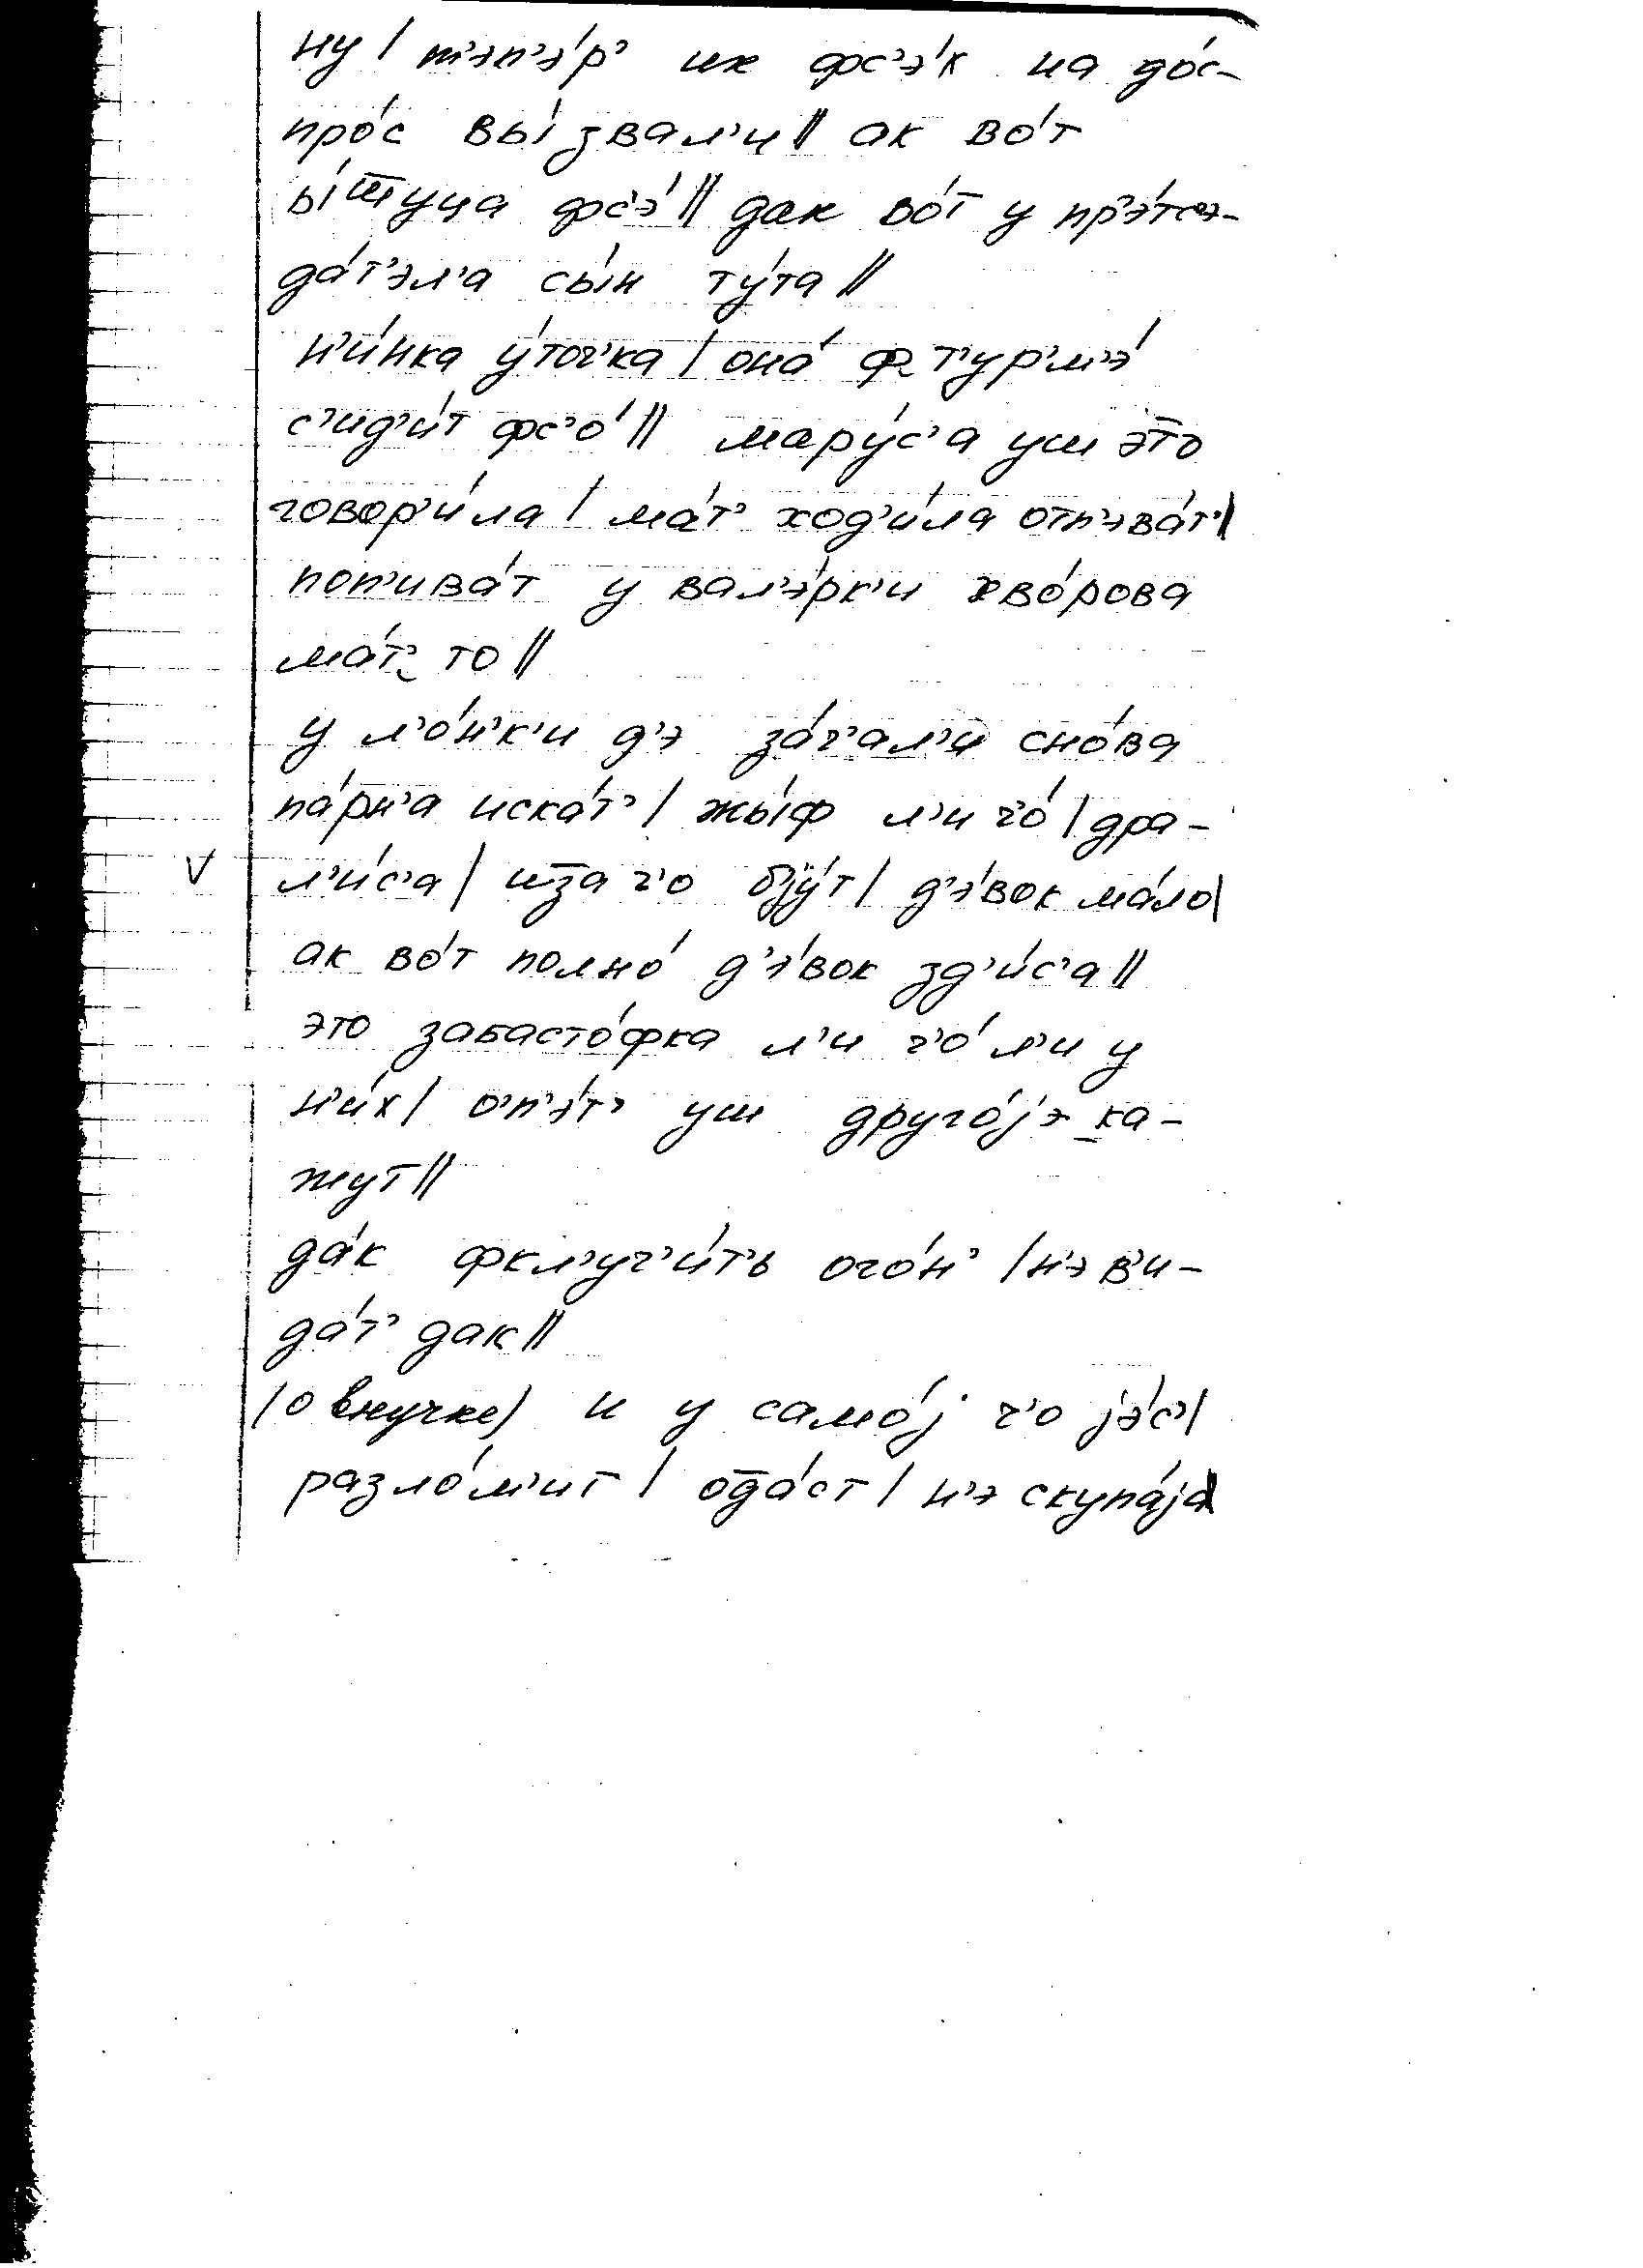 ну / т'эп'э́р' их фс'э́к на до́с-
про́с вы́звал'и // ак во́т
ы́щуца фс'э́ // дак во́т у пр'э́тсэ-
да́т'эл'а сы́н ту́та //
н'и́нка у́точ'ка / она́ ф т'ур'м'э́
с'ид'и́т фс'о́ // мару́с'а уш это
говор'и́ла / ма́т' ход'и́ла отп'эва́т' /
поп'ива́т у вал'э́рк'и хво́рова
ма́т' то //
у л'о́н'к'и д'э за́ч'ал'и сно́ва
па́рн'а иска́т' / жы́ф л'и ч'о́ / дра-
V л'и́с'а / иза ч'о бjу́т / д'э́вок ма́ло /
ак во́т полно́ д'э́вок зд'и́с'а //
это забасто́фка л'и ч'о́ л'и у
н'и́х / о'п'э́т' уш друго́jэ ка-
жут //
да́к фкл'уч'и́т'ь ого́н' / н'э в'и-
да́т' дак //
(о внучке) и у само́j ч'о jэ́с' /
разло́м'ит / ода́ст / н'э скупа́jа //